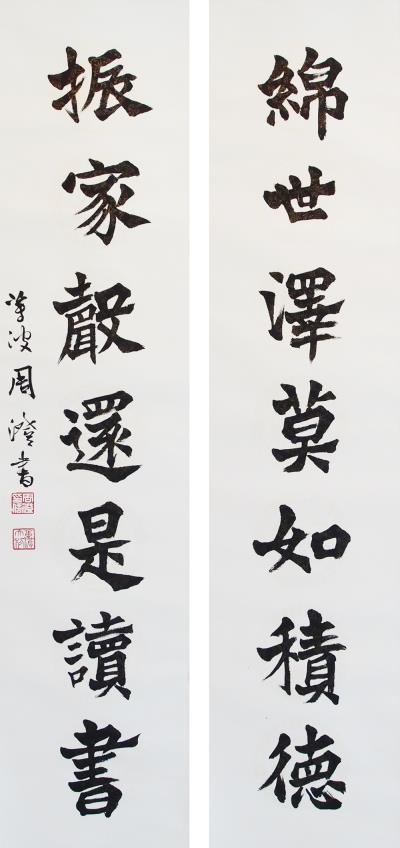 綿世澤莫如積德
振家聲還是讀書
蓴波周澄書